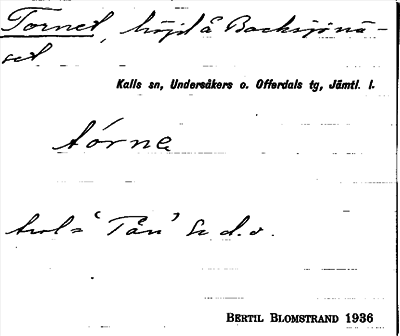 Tornet, höjd å Backsjönä-
set
Kalls sn, Undersåkers o. Offerdals tg, Jämtl. l.
tórne
‘Tån’ d.o.
BERTIL BLOMSTRAND 1936